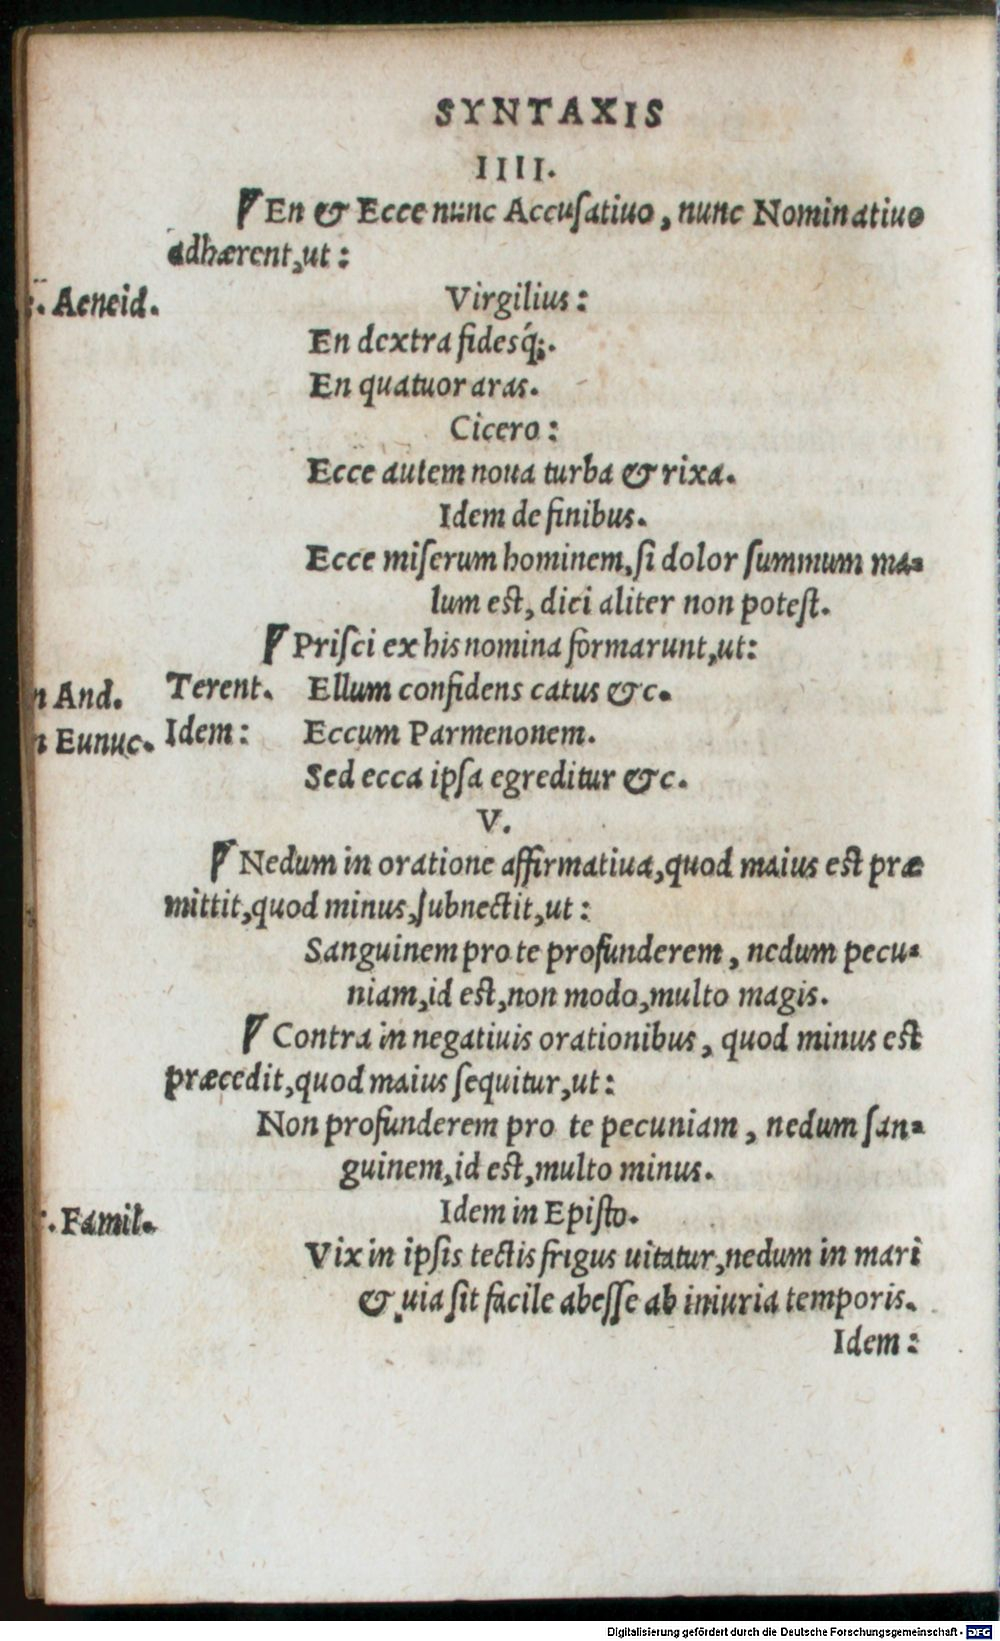 SYNTAXIS
IIII.
En & Ecce nunc Accuſatiuo, nunc Nominatiuo
adhærent, ut:
. Aeneid.
Virgilius:
En dextra fidesq́;.
En quatuor aras.
Cicero:
Ecce autem noua turba & rixa.
Idem de finibus.
Ecce miſerum hominem, ſi dolor ſummum ma=
lum est, dici aliter non poteſt.
Priſci ex his nomina formarunt, ut:
n And. Terent. Ellum confidens catus &c.
n Eunuc. Idem: Eccum Parmenonem.
Sed ecca ipſa egreditur &c.
V.
Nedum in oratione affirmatiua, quod maius est præ
mittit, quod minus, ſubnectit, ut:
Sanguinem pro te profunderem, nedum pecu=
niam, id est, non modo, multo magis.
Contra in negatiuis orationibus, quod minus est
præcedit, quod maius ſequitur, ut:
Non profunderem pro te pecuniam, nedum ſan=
guinem, id est, multo minus.
. Famil.
Idem in Epiſto.
Vix in ipſis tectis frigus uitatur, nedum in mari
& uia ſit facile abeſſe ab iniuria temporis.
Idem:
Digitalisierung gefördert durch die Deutsche Forschungsgemeinschaft - DFG